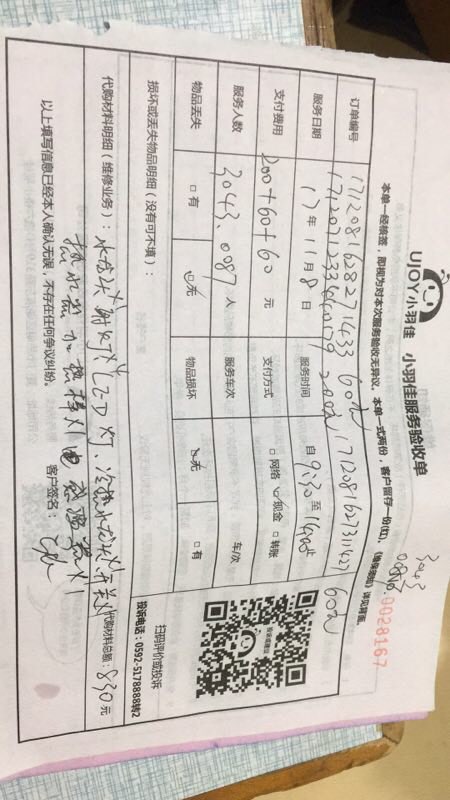 UJOY小羽佳 小羽佳服务验收单
3043
0087
NO.0028167
本单一经核签，即视为对本次服务验收无异议。本单一式两份，客户留存一份(红)。 详见背面
订单编号 60元
200元 60元
服务日期 17年11月8日 服务时间 自9:30至
支付费用 200+60+60元 支付方式 □网络 现金 □转账
服务人数 3043、0087人 服务车次 车/次
物品丢失 □有 □无 物品损坏 □无 □有
扫码评价或投诉
投诉电话：0592-5178888转2
损坏或丢失物品明细（没有可不填）：
代购材料明细（维修业务）：水龙头 射灯 灯、冷热水龙头 开关 代购材料总额：830元
热水器加热棒X1
以上填写信息已经本人确认无误，不存在任何争议纠纷。 客户签名：